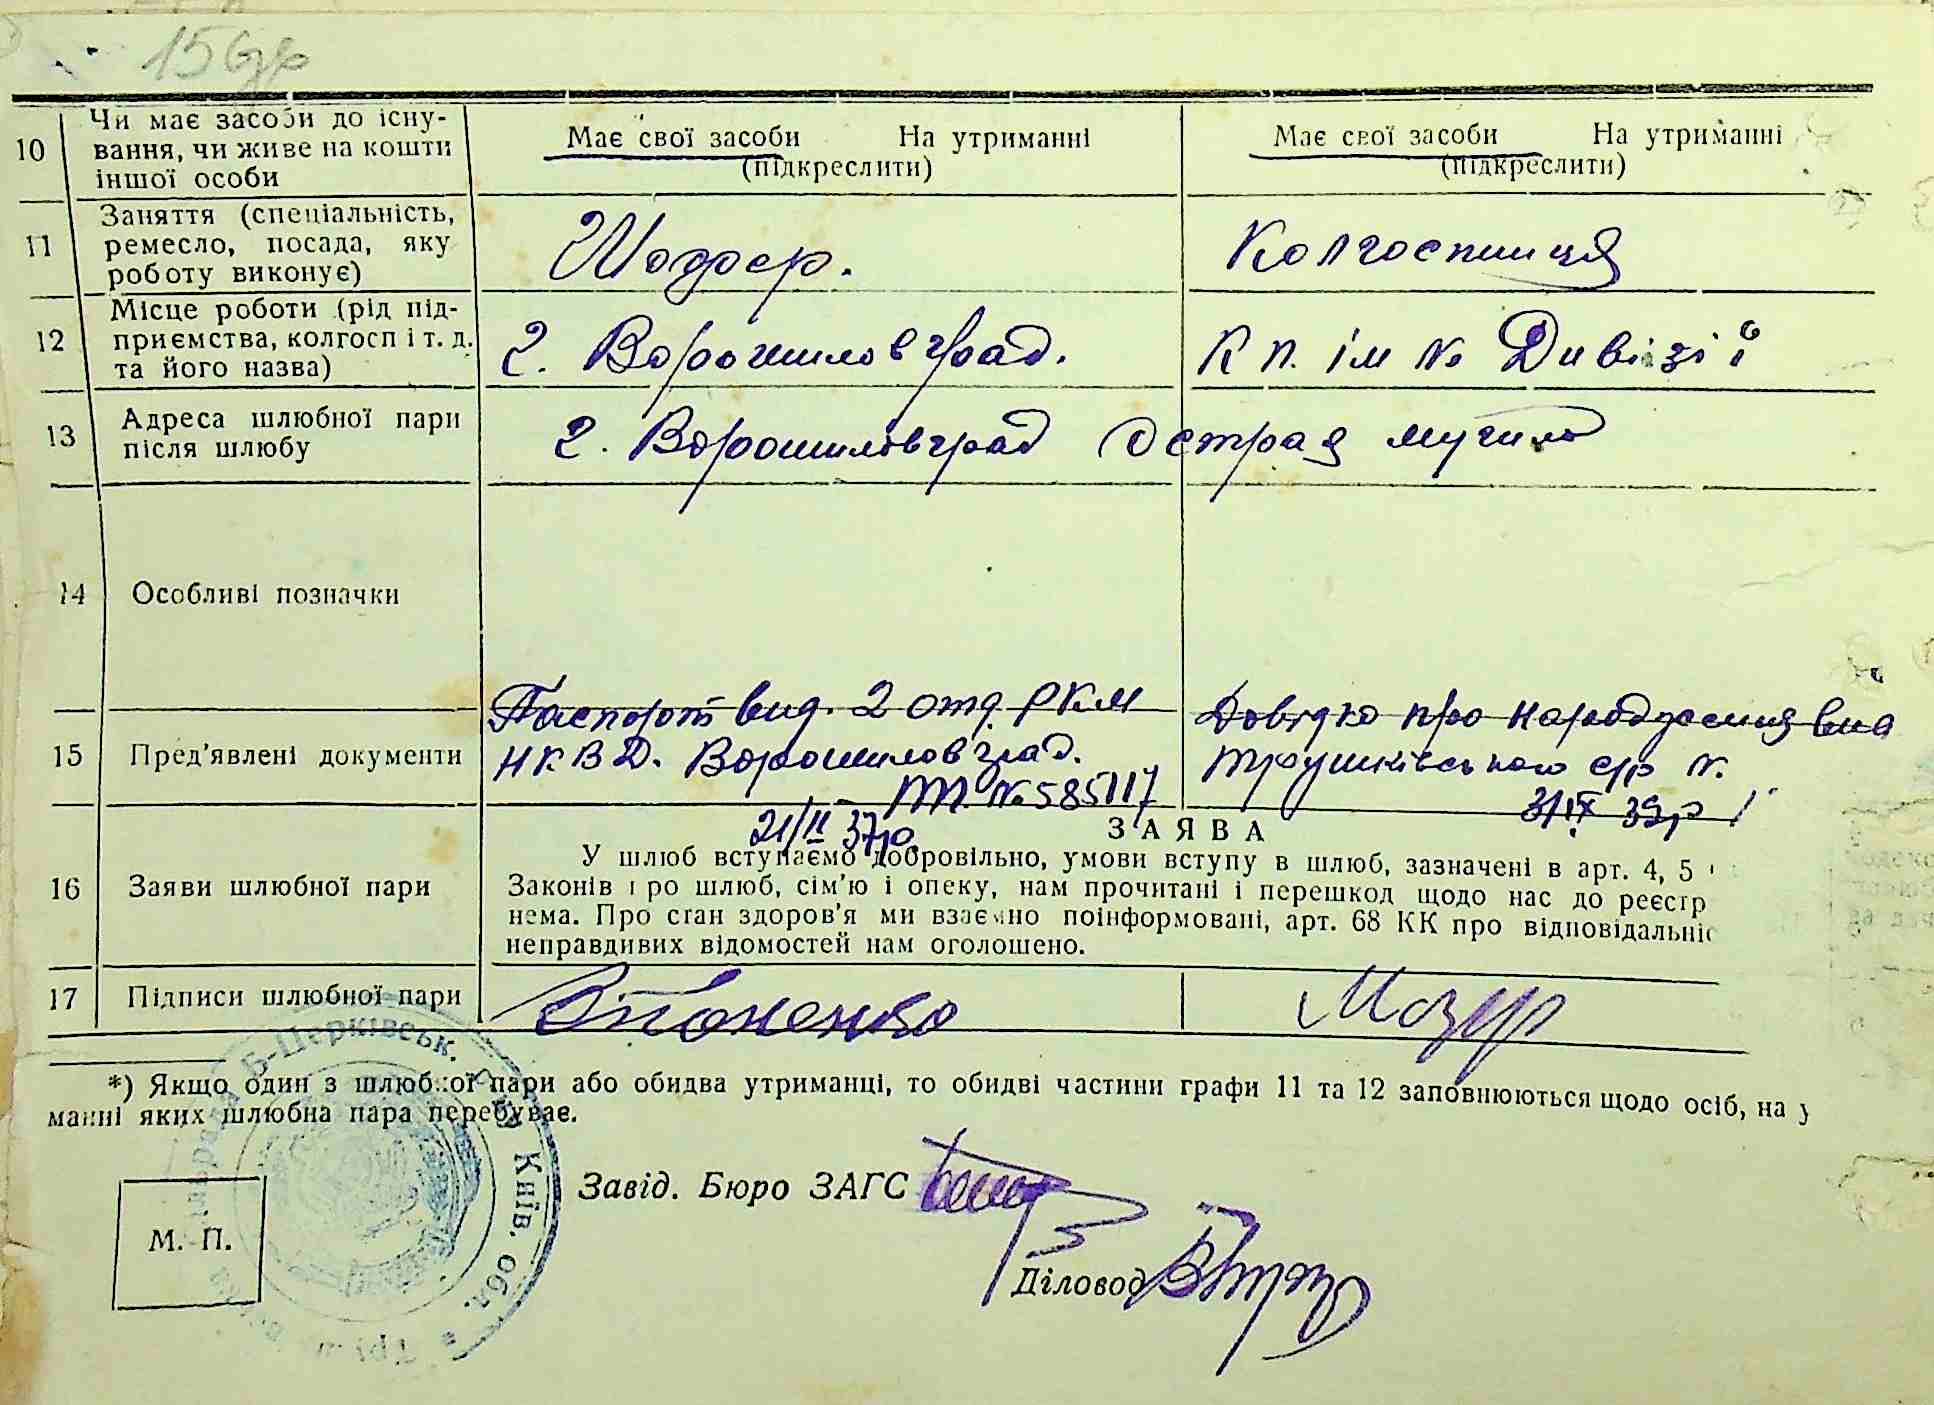 156зв
10 Чи має засоби до існу-
вання, чи живе на кошти
іншої особи
Має свої засоби На утриманні
(підкреслити)
Має свої засоби На утриманні
(підкреслити)
11 Заняття (спеціальність,
ремесло, посада, яку
роботу виконує)
Шофер.
Колгоспниця
12 Місце роботи (рід під-
приємства, колгосп і т. д.
та його назва)
г. Ворошиловград.
К п. ім № Дивізії
13 Адреса шлюбної пари
після шлюбу
г. Ворошиловград Острая
14 Особливі позначки
15 Пред'явлені документи
Паспорт вид. 2 отд. РКМ
НКВД. Ворошиловград.
№ 585117
21/II 37р.
Довідка про народження вид
Трушківською с/р №.
31/IX 39р
16 Заяви шлюбної пари
ЗАЯВА
У шлюб вступаємо добровільно, умови вступу в шлюб, зазначені в арт. 4, 5
Законів про шлюб, сім'ю і опеку, нам прочитані і перешкод щодо нас до реєстр
нема. Про стан здоров'я ми взаємно поінформовані, арт. 68 КК про відповідальніс
неправдивих відомостей нам оголошено.
17 Підписи шлюбної пари
Мозур
*) Якщо один з шлюбної пари або обидва утриманці, то обидві частини графи 11 та 12 заповнюються щодо осіб, на у
манні яких шлюбна пара перебуває.
Б-Церківськ. Київ. обл.
Завід. Бюро ЗАГС
М. П.
Діловод